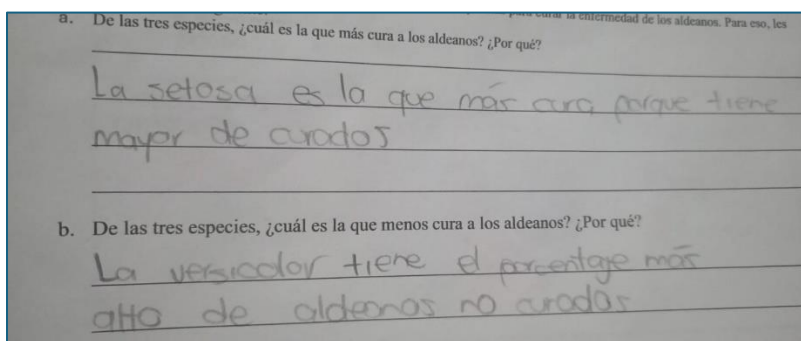 para curar la enfermedad de los aldeanos. Para eso, les
a. De las tres especies, ¿cuál es la que más cura a los aldeanos? ¿Por qué?
La setosa es la que más cura porque tiene
mayor de curados
b. De las tres especies, ¿cuál es la que menos cura a los aldeanos? ¿Por qué?
La versicolor tiene el porcentaje más
alto de aldeanos no curados